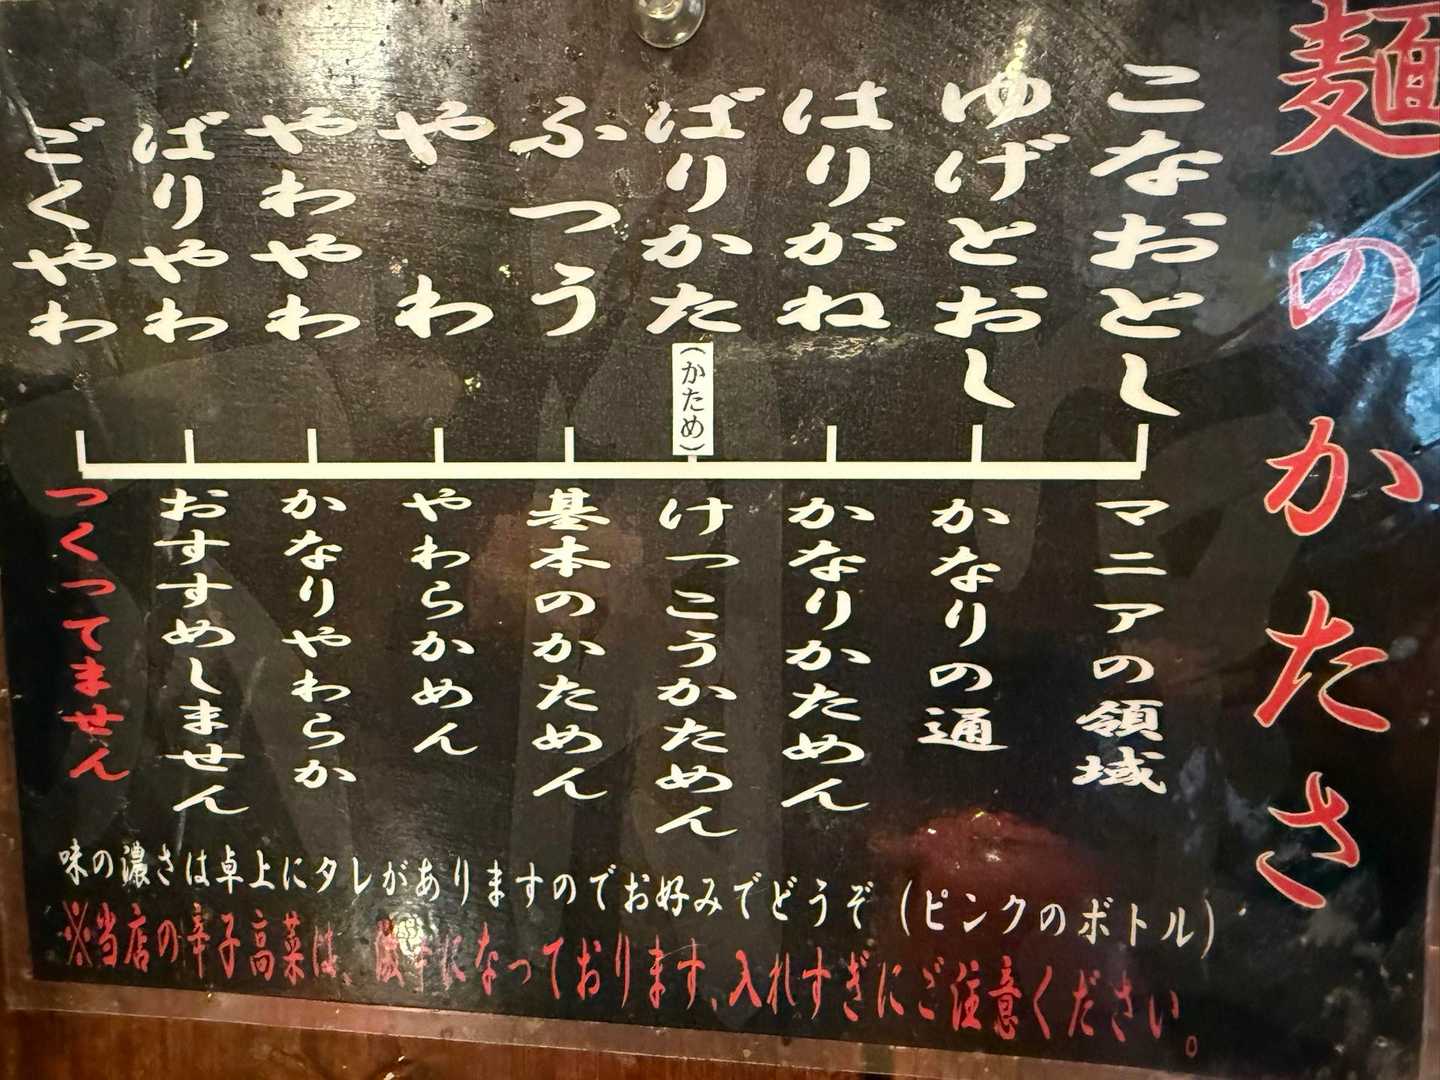 麺のかたさ
こなおとし
ゆげとおし
はりがね
ばりかた
(かため)
ふつう
やわ
やわやわ
ばりやわ
ごくやわ
マニアの領域
かなりの通
かなりかためん
けっこうかためん
基本のかためん
やわらかめん
かなりやわらか
おすすめしません
つくってません
味の濃さは卓上にタレがありますのでお好みでどうぞ(ピンクのボトル)
※当店の辛子高菜は、激辛になっております、入れすぎにご注意ください。